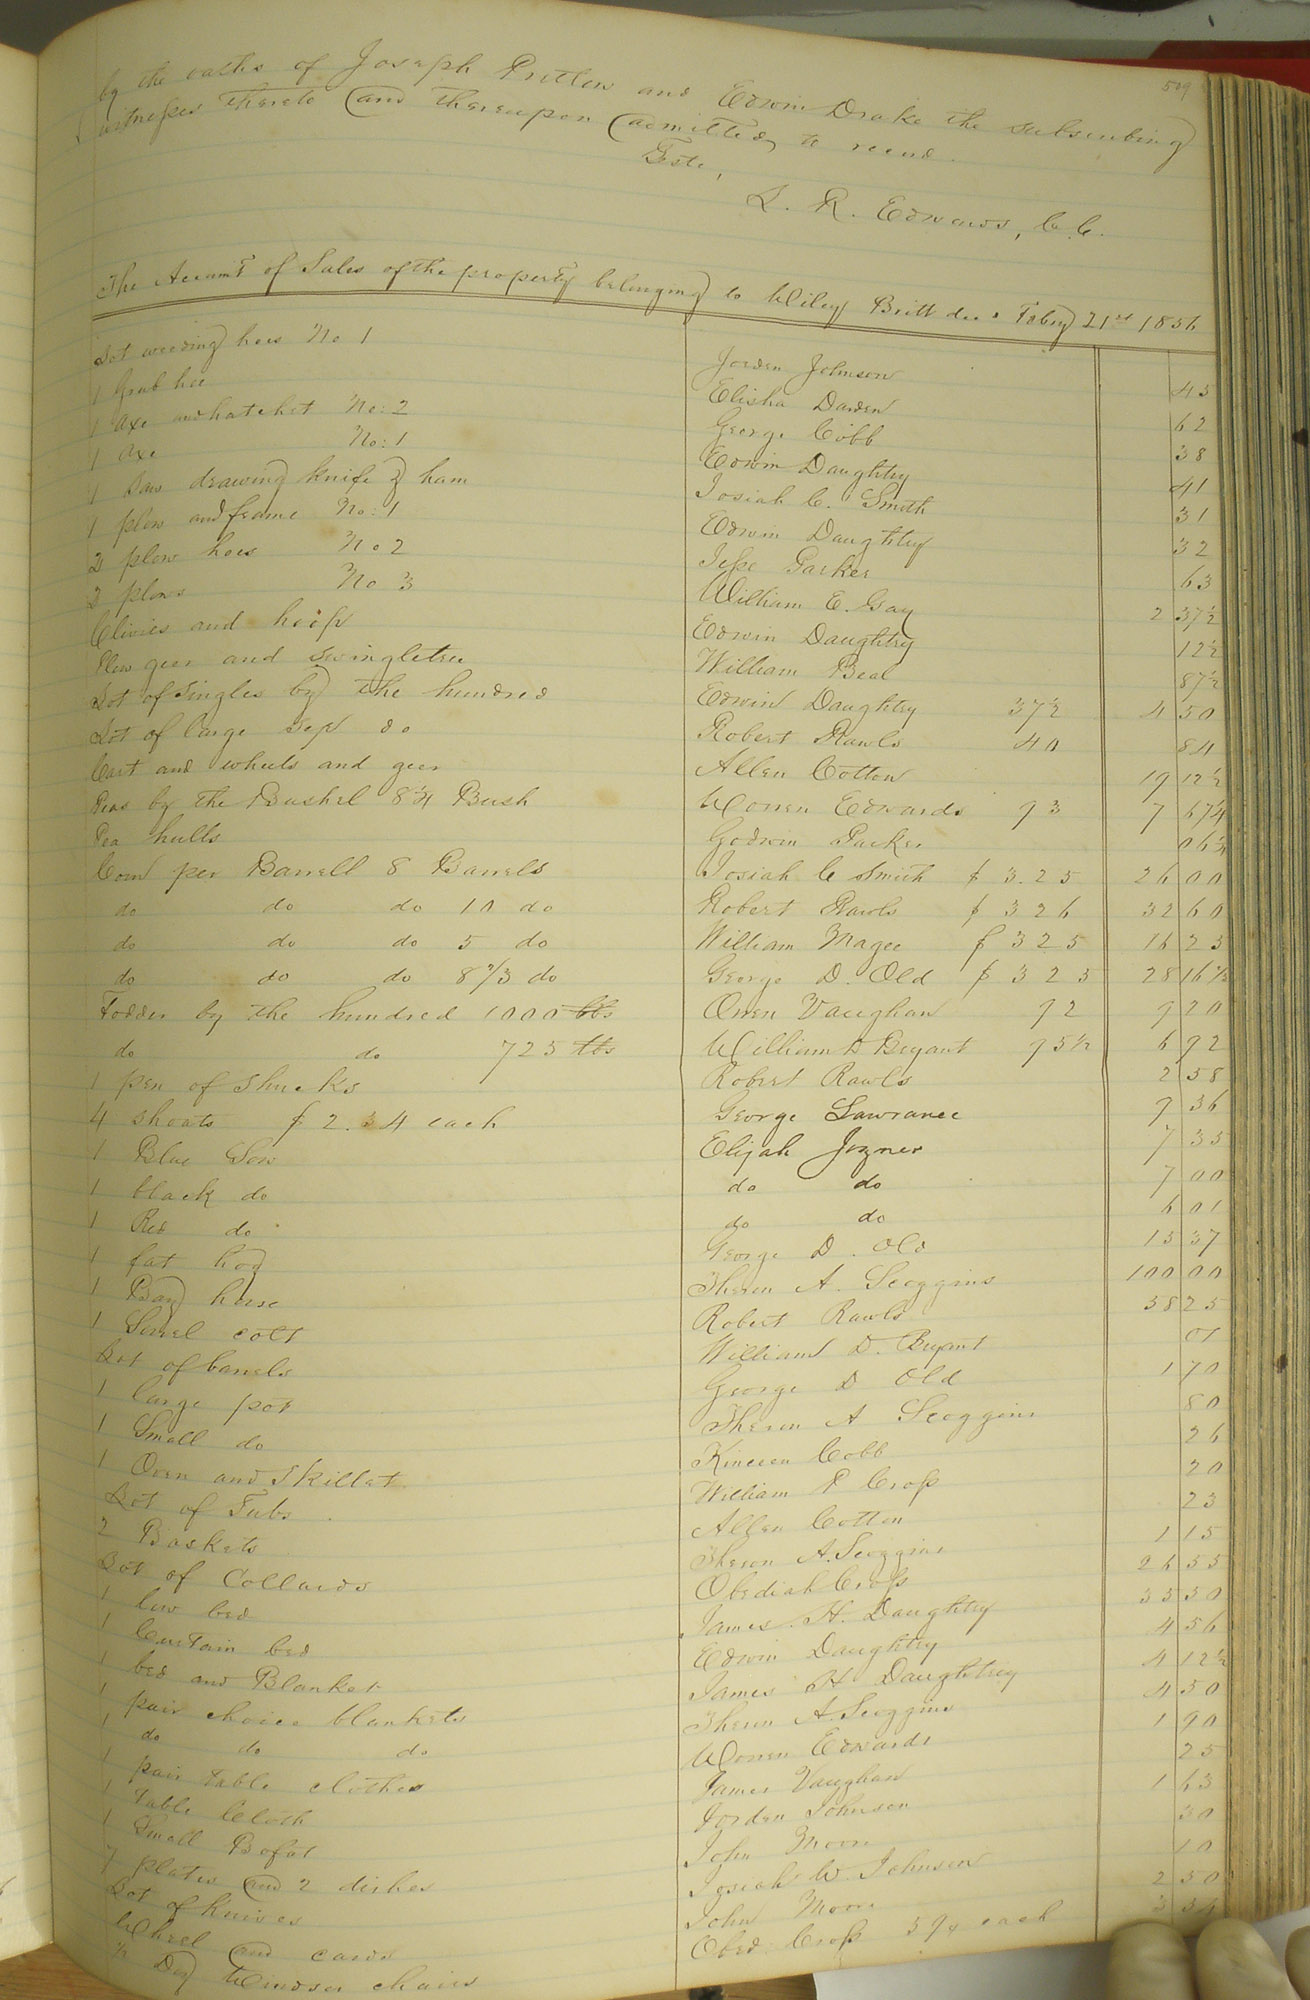 509
by the oaths of Joseph Pretlow and Edwin Drake the subscribing
witnesses thereto and thereupon admitted to record.
Teste,
L. R. Edwards, C. C.
The Account of Sales of the property belonging to Wiley Britt dec. Feby 21st 1856
Lot weeding hoes No 1 Jorden Johnson 45
1 Grub hoe Elisha Darden 62
1 Axe and hatchet No: 2 George Cobb 38
1 Axe No: 1 Edwin Daughtry 41
1 Saw drawing knife & ham Josiah C. Smith 31
1 plow and frame No: 1 Edwin Daughtry 32
2 plow hoes No 2 Jesse Parker 63
2 plows No 3 William E. Gay 2 37½
Clivies and Edwin Daughtry 12½
Plow geer and swingletree William Beal 87½
Lot of Singles by the hundred Edwin Daughtry 37½ 4 50
Lot of large do Robert Rawls 40 84
Cart and wheels and geer Allen Cotton 19 12½
Peas by the Bushel 8¼ Bush Edwards 93 7 67¼
Pea hulls Godwin Parker 06¼
Corn per Barrell 8 Barrels Josiah C Smith $ 3.25 26 00
do do do 10 do Robert Rawls $ 3 26 32 60
do do do 5 do William Magee $ 3 25 16 25
do do do 8 2/3 do George D. Old $ 3 25 28 16½
Fodder by the hundred 1000 lbs Owen Vaughan 92 9 20
do do 725 lbs William D Bryant 95½ 6 92
1 pen of shucks Robert Rawls 2 58
4 shoats $ 2.34 each George Lawrance 9 36
1 Blue Sow Elijah Joyner 7 35
1 black do do do 7 00
1 Red do do do 6 01
1 fat hog George D. Old 13 37
1 Bay horse Theron A. Scoggins 100 00
1 Sorrel colt Robert Rawls 58 25
Lot of barrels William D. Bryant 01
1 large pot George D Old 1 70
1 Small do Theron A Scoggins 80
1 Oven and Skillet Cobb 26
Lot of Tubs William P Cross 20
2 Baskets Allen Cotton 23
Lot of Collards Theron A. Scoggins 1 15
1 low bed Obediah Cross 26 55
1 Curtain bed James. H. Daughtry 35 50
1 bed and Blanket Edwin Daughtry 4 56
1 pair choice blankets James H Daughtrey 4 12½
1 do do do Theron A. Scoggins 4 50
1 pair table clothes Edwards 1 90
1 Table Cloth James Vaughan 25
1 Small Bofat Jorden Johnson 1 63
7 plates and 2 dishes John Moore 30
Lot of Knives Josiah W. Johnson 10
Wheel and cards John Moore 2 50
½ Doz Windsor chairs Obed: Cross 59¼ each 3